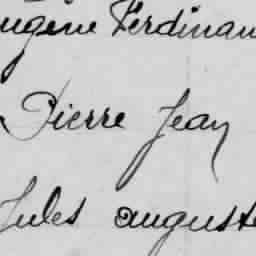 ugène Ferdinan
Pierre Jean
Jules auguste